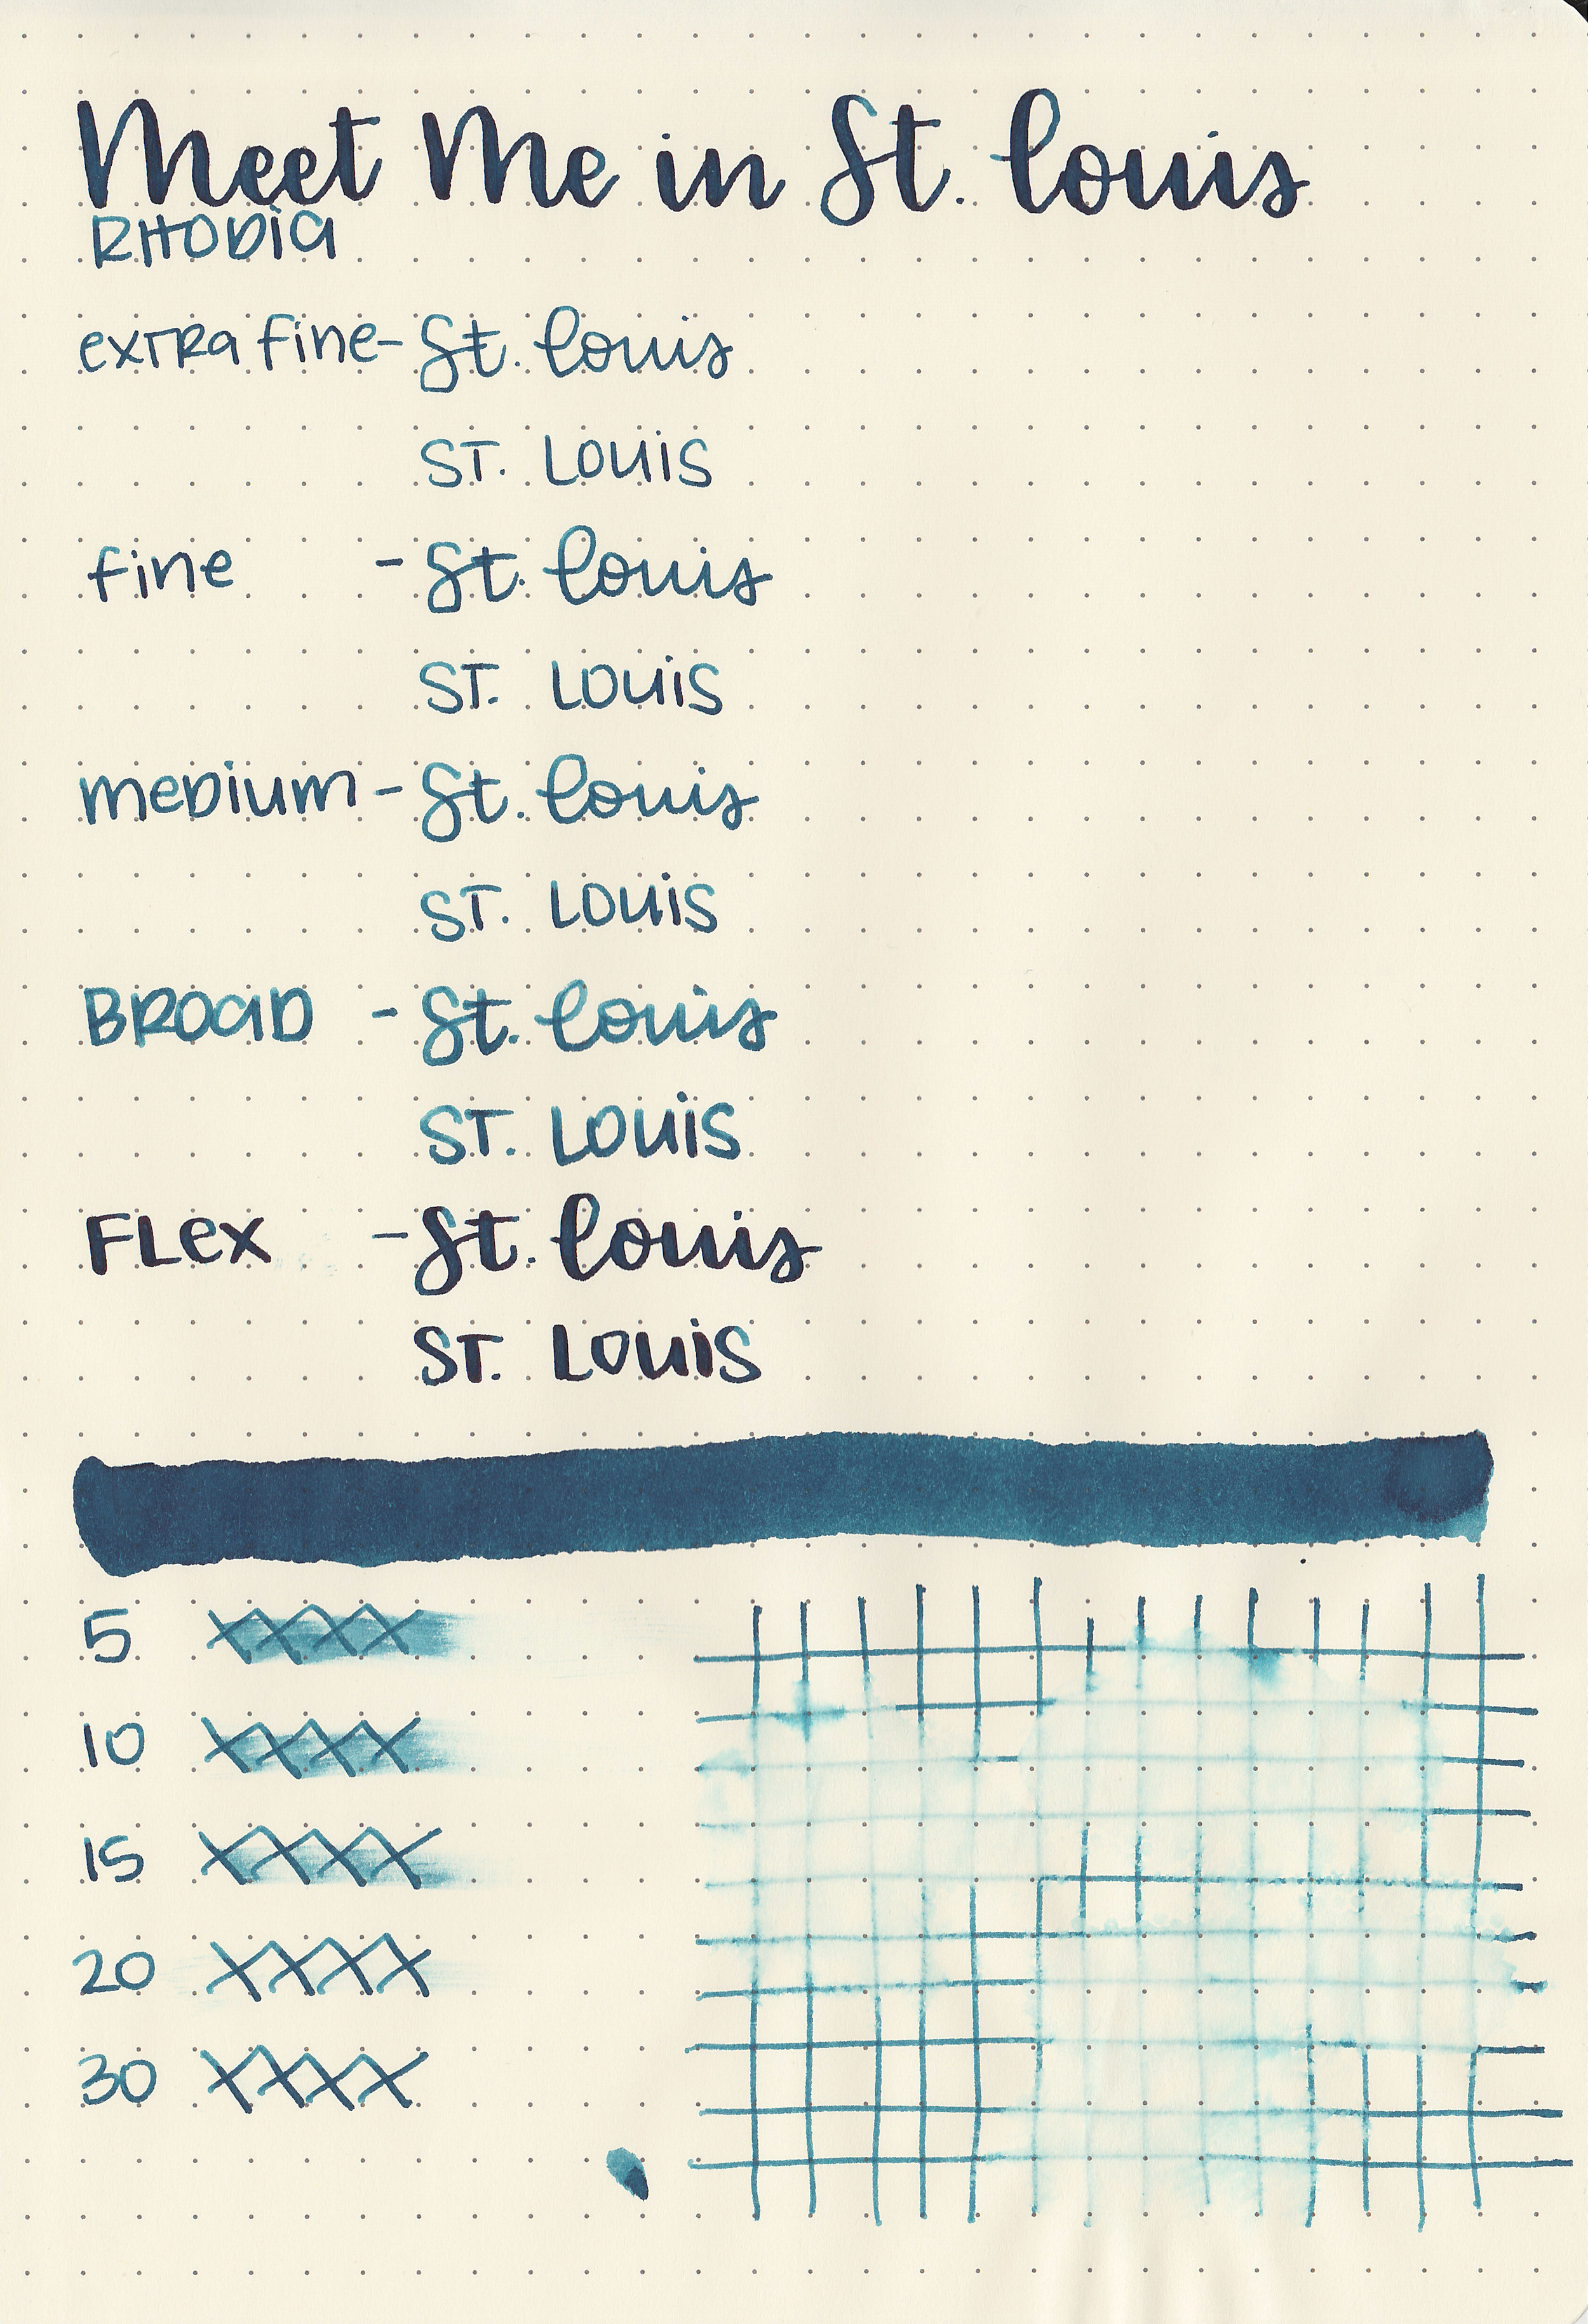 Meet Me in St. Louis
RHODIA
extra fine - St. Louis
ST. LOUIS
fine - St. Louis
ST. LOUIS
medium - St. Louis
ST. LOUIS
BROAD - St. Louis
ST. LOUIS
FLex - St. Louis
ST. LOUIS
5 XXXX
10 XXXX
15 XXXX
20 XXXX
30 XXXX